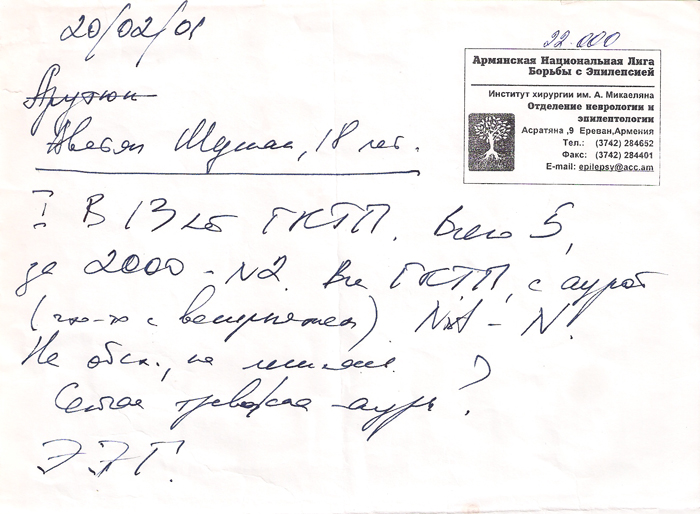 20/02/01
22.000
Армянская Национальная Лига
Борьбы с Эпилепсией
Институт хирургии им. А. Микаеляна
Отделение неврологии и
эпилептологии
Асратяна ,9 Ереван,Армения
Тел.: (3742) 284652
Факс: (3742) 284401
E-mail: epilepsy@acc.am
Арутюн
Аветян 18 лет.
I В 13 лет ГКТП. Всего 5,
за 2000 - N2. Все ГКТП, с аурой
(что-то с ). N.
Не обсл., не
Сейчас тревожна аура?
ЭЭГ.